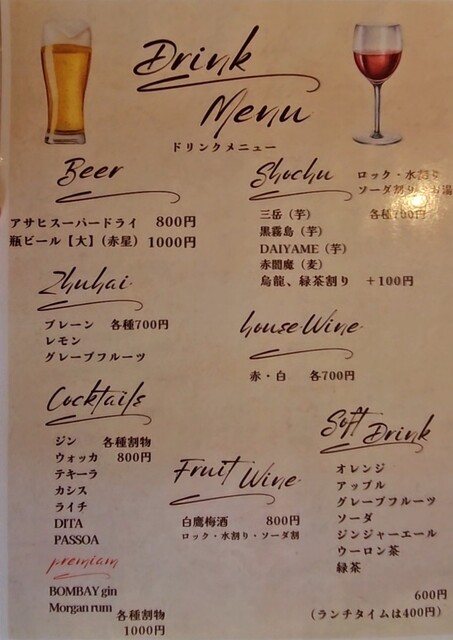 Drink
Menu
ドリンクメニュー
Beer
アサヒスーパードライ 800円
瓶ビール【大】(赤星) 1000円
Shochu
ロック・水割り
ソーダ割り・お湯
三岳(芋) 各種700円
黒霧島(芋)
DAIYAME(芋)
赤閻魔(麦)
烏龍、緑茶割り +100円
Zhuhai
プレーン 各種700円
レモン
グレープフルーツ
houseWine
赤・白 各700円
Cocktails
ジン 各種割物
ウォッカ 800円
テキーラ
カシス
ライチ
DITA
PASSOA
premiam
BOMBAY gin
Morgan rum 各種割物
1000円
Fruit Wine
白鷹梅酒 800円
ロック・水割り・ソーダ割
Soft Drink
オレンジ
アップル
グレープフルーツ
ソーダ
ジンジャーエール
ウーロン茶
緑茶
600円
(ランチタイムは400円)